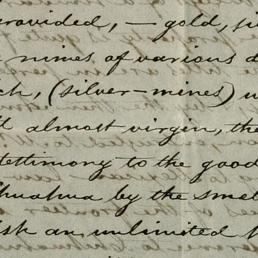 provided, — gold,
mines of various
(silver-mines)
almost virgin, the
testimony to the good
huahua by the smel
sk an unlimited